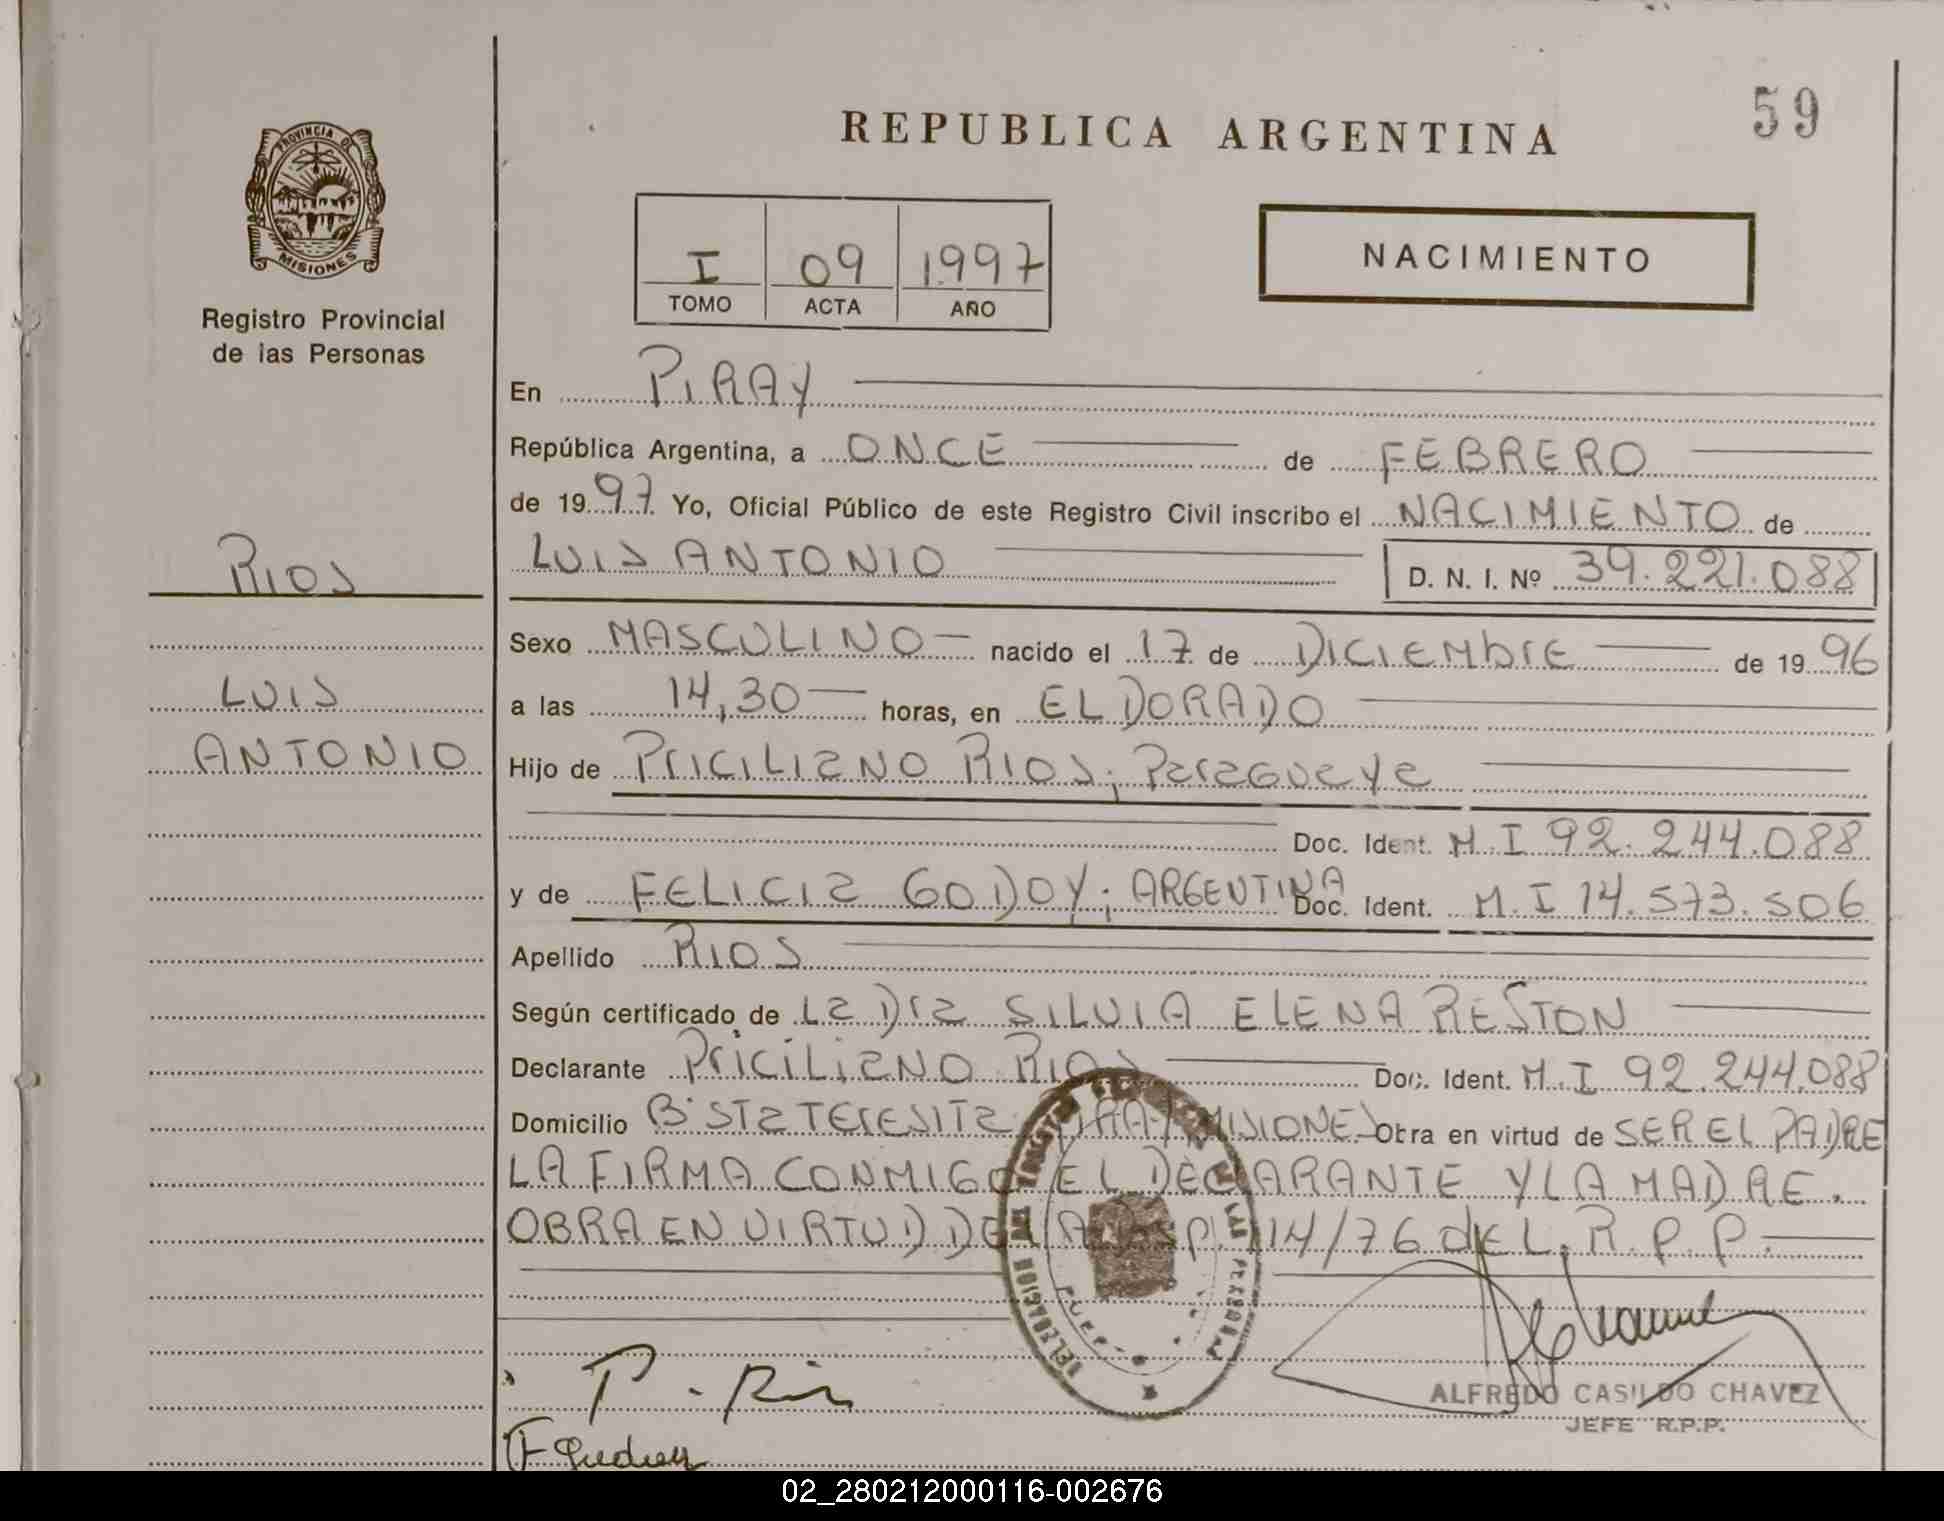 59
REPUBLICA ARGENTINA
PROVINCIA DE
MISIONES
Registro Provincial
de las Personas
I 09 1997
TOMO ACTA AÑO
NACIMIENTO
En PIRAY
República Argentina, a ONCE de FEBRERO
de 1997 Yo, Oficial Público de este Registro Civil inscribo el NACIMIENTO de
LUIS ANTONIO D. N. I. Nº 39.221.088
RIOS
LUIS
ANTONIO
Sexo MASCULINO nacido el 17 de DICIEMbrE de 1996
a las 14,30 horas, en ELDORADO
Hijo de PriCILIaNO RIOS; ParaGUaYa
Doc. Ident. M.I 92.244.088
y de FELICIa GODOY; ARGENTINA Doc. Ident. M.I 14.573.506
Apellido RIOS
Según certificado de La Dra SILVIA ELENA RESTON
Declarante PriCiLiaNO RIOS Doc. Ident. M.I 92.244.088
Domicilio B° STa TErESITa PIRAY MISIONES Obra en virtud de SER EL PADRE
LA FIRMA CONMIGO EL DECLARANTE Y LA MADRE.
OBRA EN VIRTUD DE LA DISP. 114/76 dEL R.P.P.
P. Rios
F Godoy
ALFREDO CASILDO CHAVEZ
JEFE R.P.P.
02_280212000116-002676